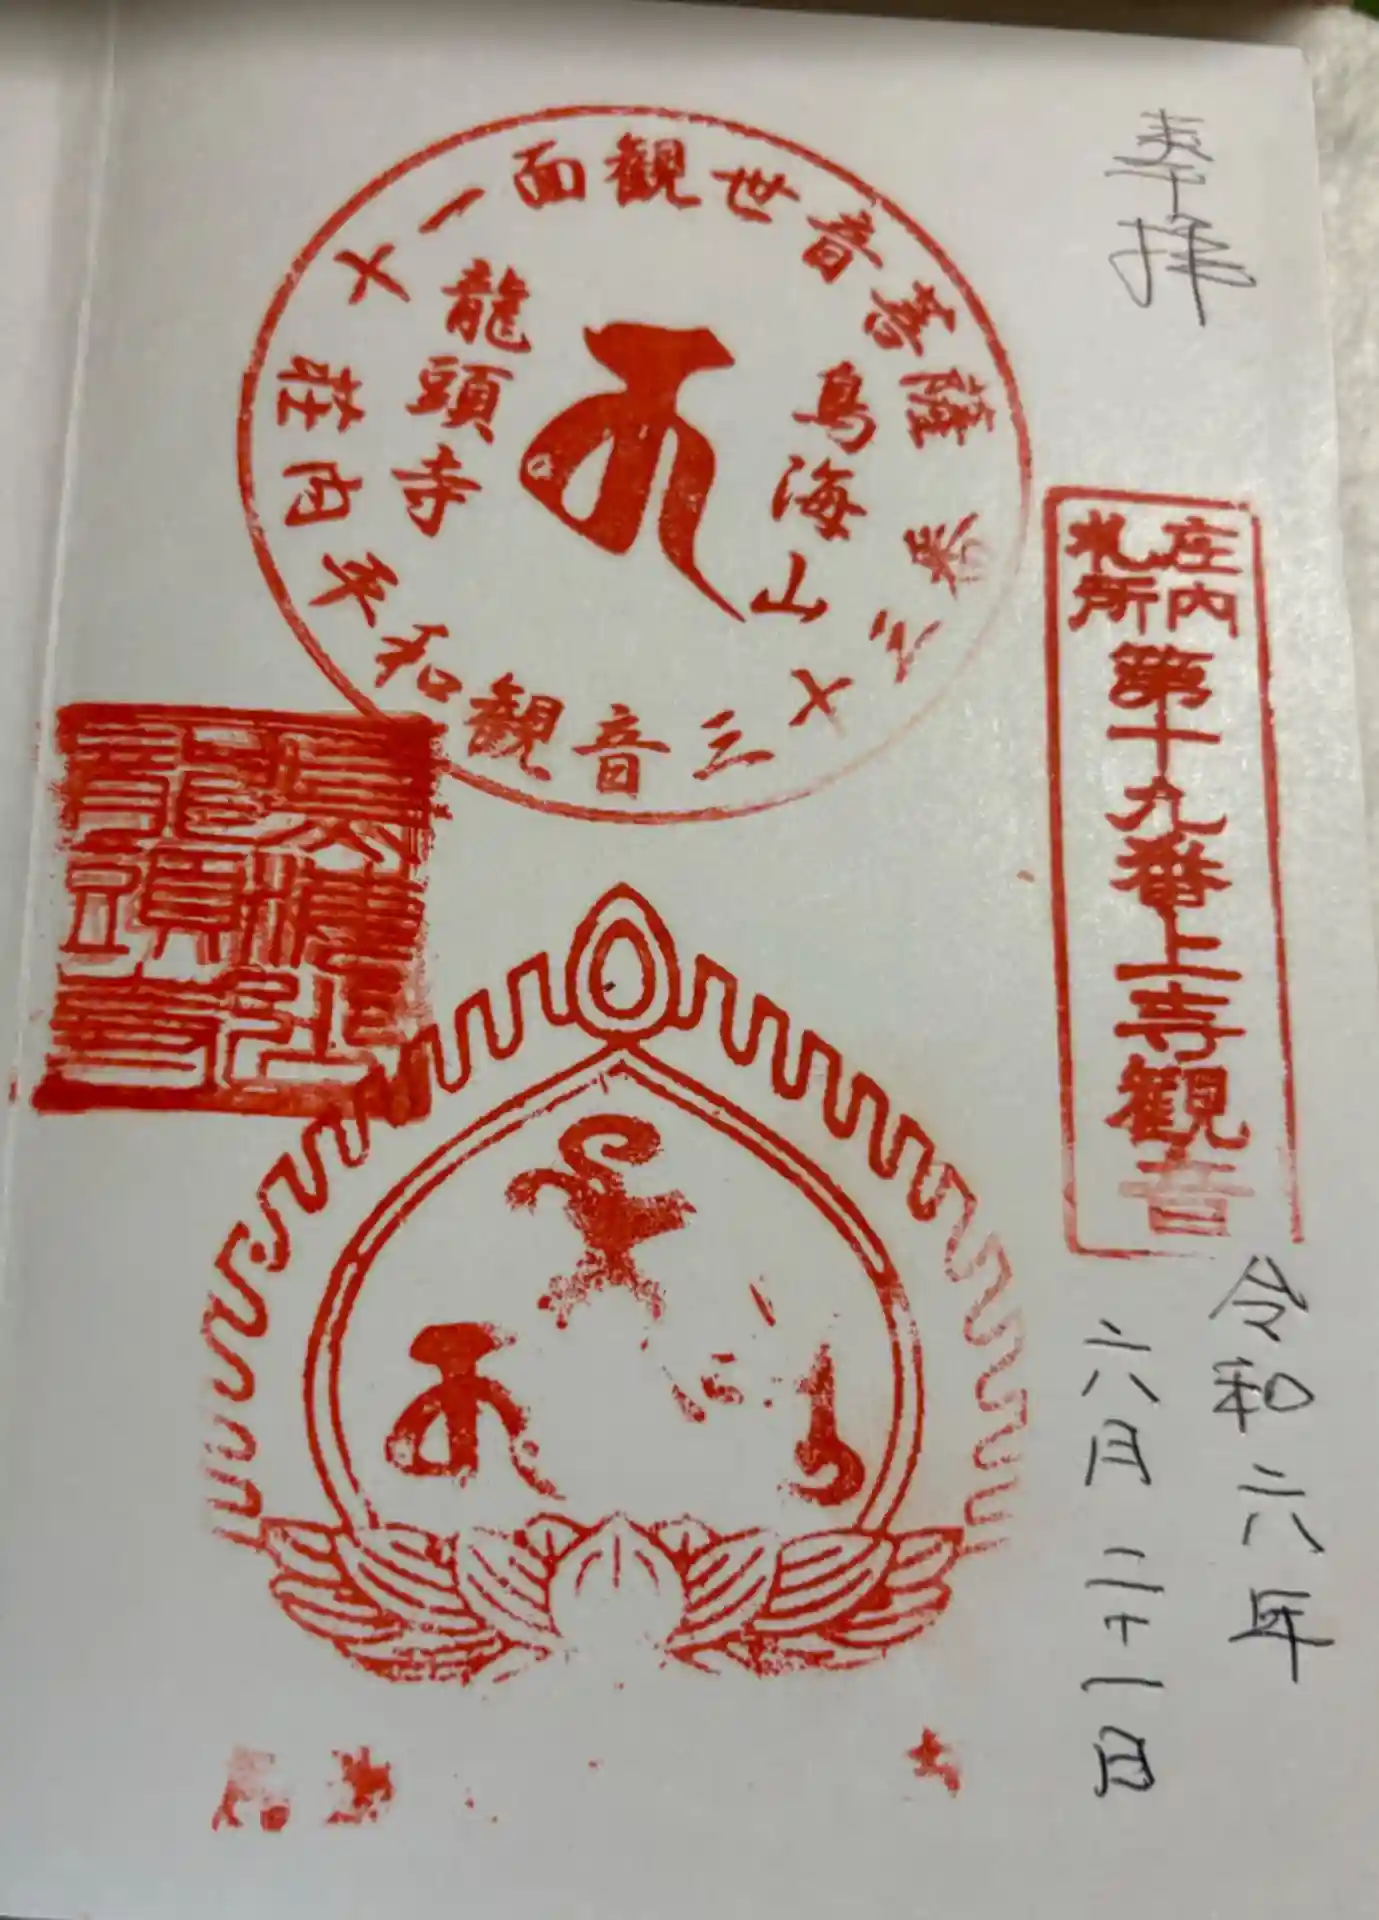 奉拝
庄内
札所
第十九番上寺観音
令和六年
六月二十二日
十一面観世音菩薩
鳥海山
龍頭寺
荘内平和観音三十三番
鳥海山
龍頭寺